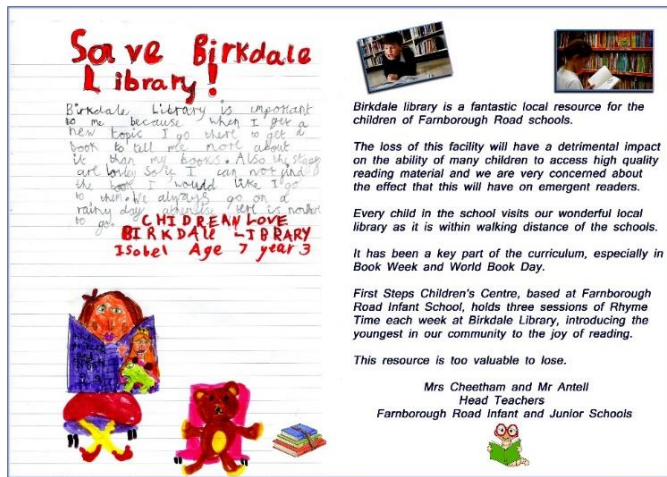 Save Birkdale
Library!
Birkdale Library is important
to me because when I get a
new topic I go there to get a
book to tell me more about
it than my books. Also the
are lovely so if I can not find
the book I would like I go
to them. We always go on a
rainy day there is
to go.
CHILDREAN LOVE
BIRKDALE LIBRARY
Isobel Age 7 year 3
Birkdale library is a fantastic local resource for the
children of Farnborough Road schools.
The loss of this facility will have a detrimental impact
on the ability of many children to access high quality
reading material and we are very concerned about
the effect that this will have on emergent readers.
Every child in the school visits our wonderful local
library as it is within walking distance of the schools.
It has been a key part of the curriculum, especially in
Book Week and World Book Day.
First Steps Children's Centre, based at Farnborough
Road Infant School, holds three sessions of Rhyme
Time each week at Birkdale Library, introducing the
youngest in our community to the joy of reading.
This resource is too valuable to lose.
Mrs Cheetham and Mr Antell
Head Teachers
Farnborough Road Infant and Junior Schools